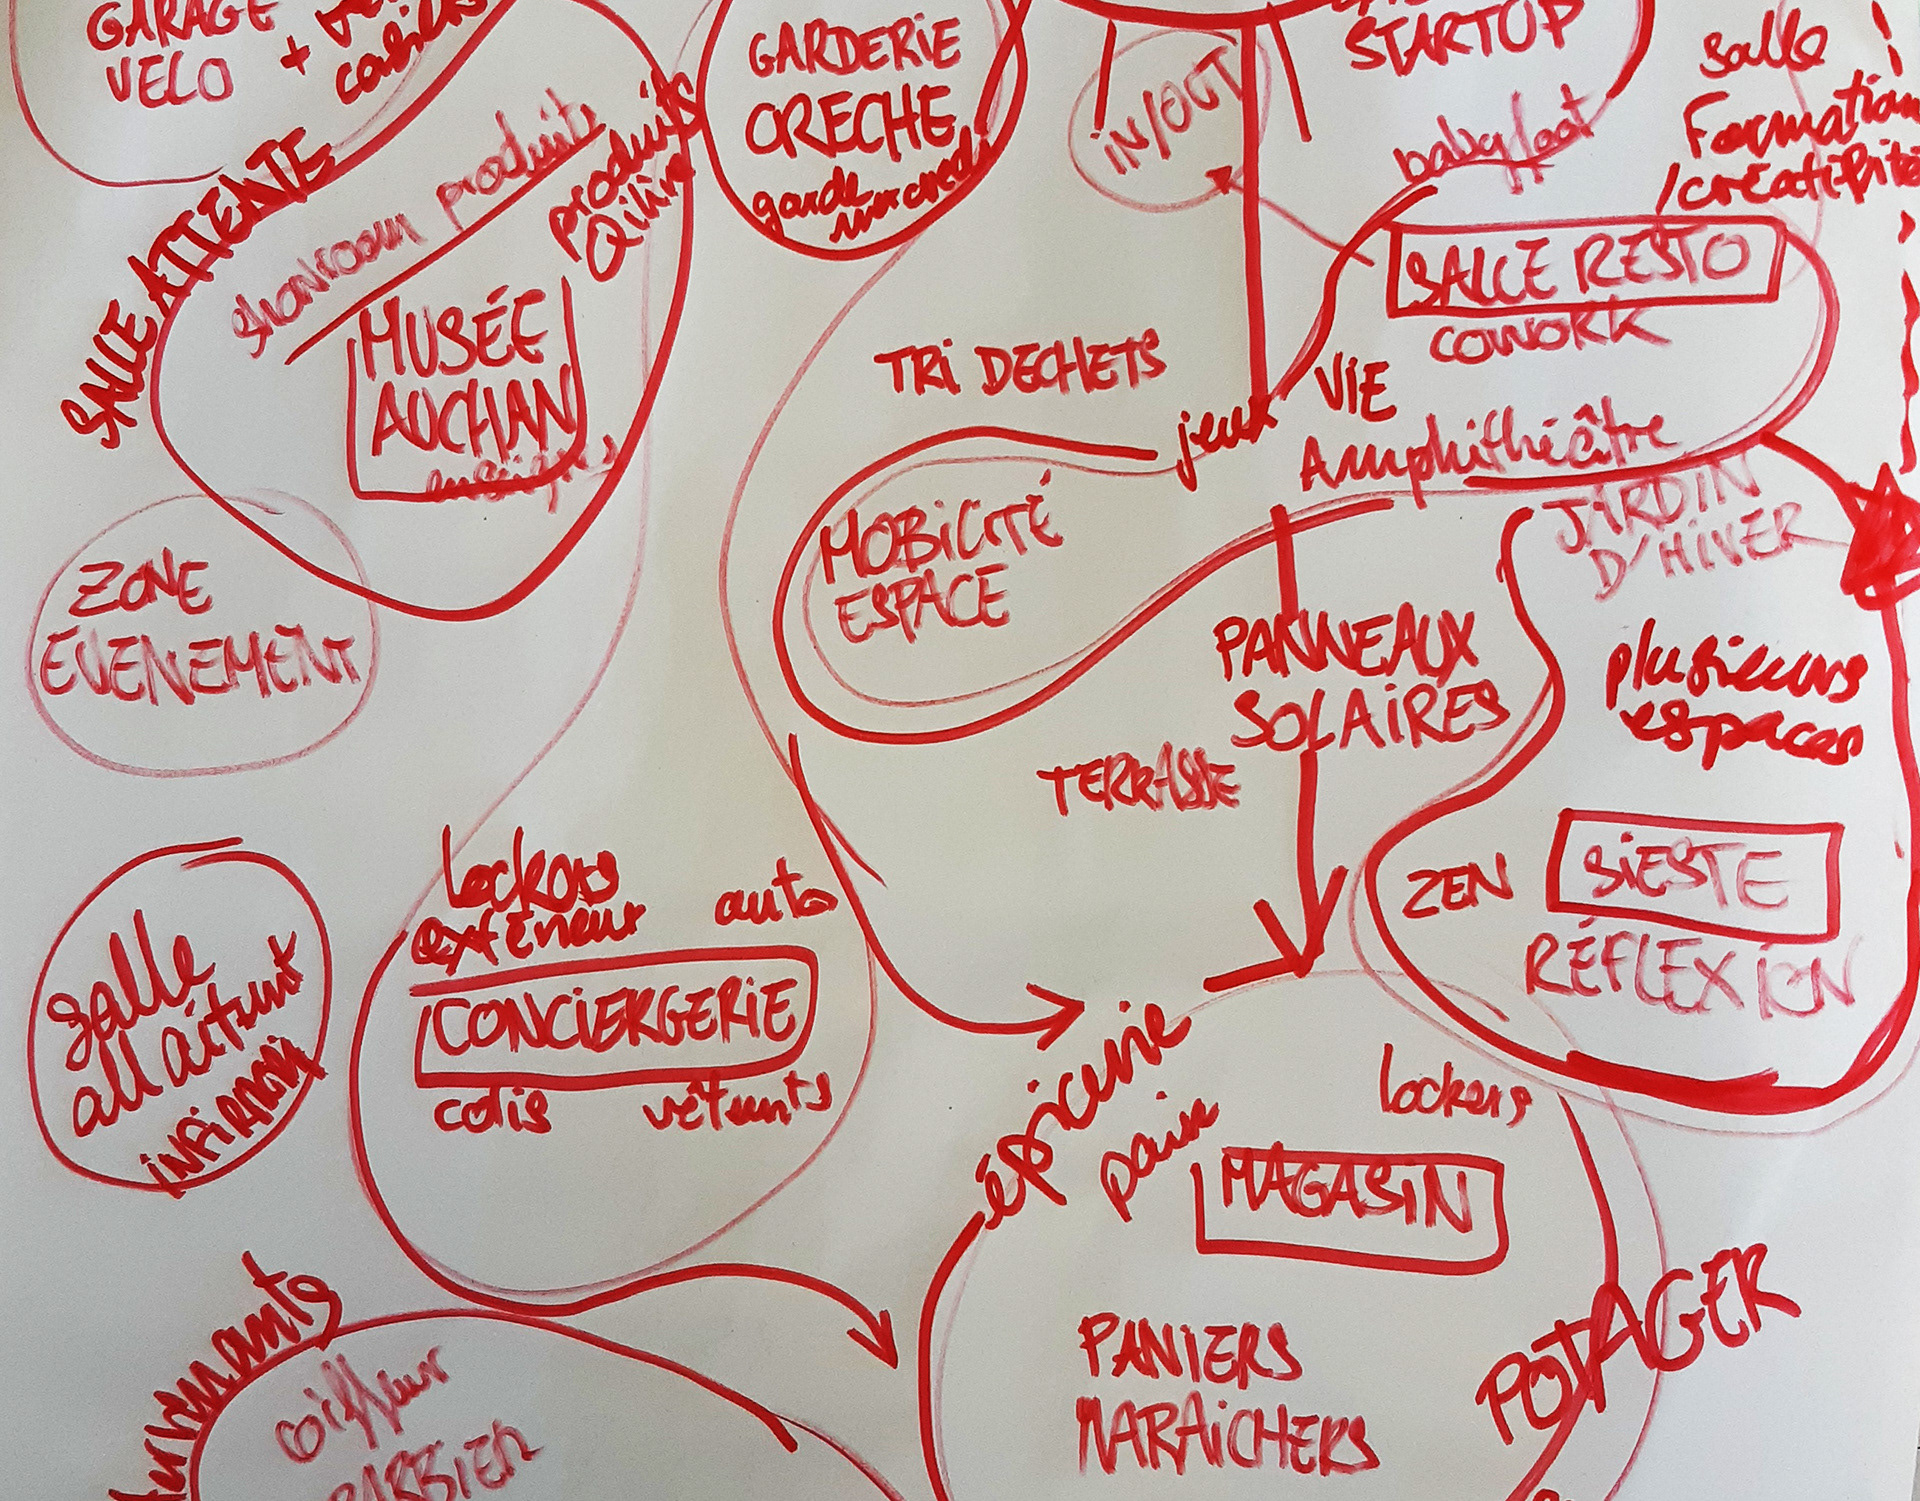 GARAGE
VELO
+
SALLE ATTENTE
showroom produits
produits
MUSÉE
AUCHAN
enseignes
GARDERIE
CRECHE
garde
mercredi
IN/OUT
STARTUP
babyfoot
Salle
Formation
/créativité
SALLE RESTO
COWORK
TRI DECHETS
jeux
VIE
Amphithéâtre
JARDIN
D'HIVER
MOBILITÉ
ESPACE
ZONE
EVENEMENT
PANNEAUX
SOLAIRES
TERRASSE
plusieurs
espaces
ZEN
SIESTE
RÉFLEXION
lockers
extérieur
auto
CONCIERGERIE
colis
vêtements
salle
allaitement
épicerie
pain
lockers
MAGASIN
PANIERS
MARAICHERS
POTAGER
coiffeur
BARBIER